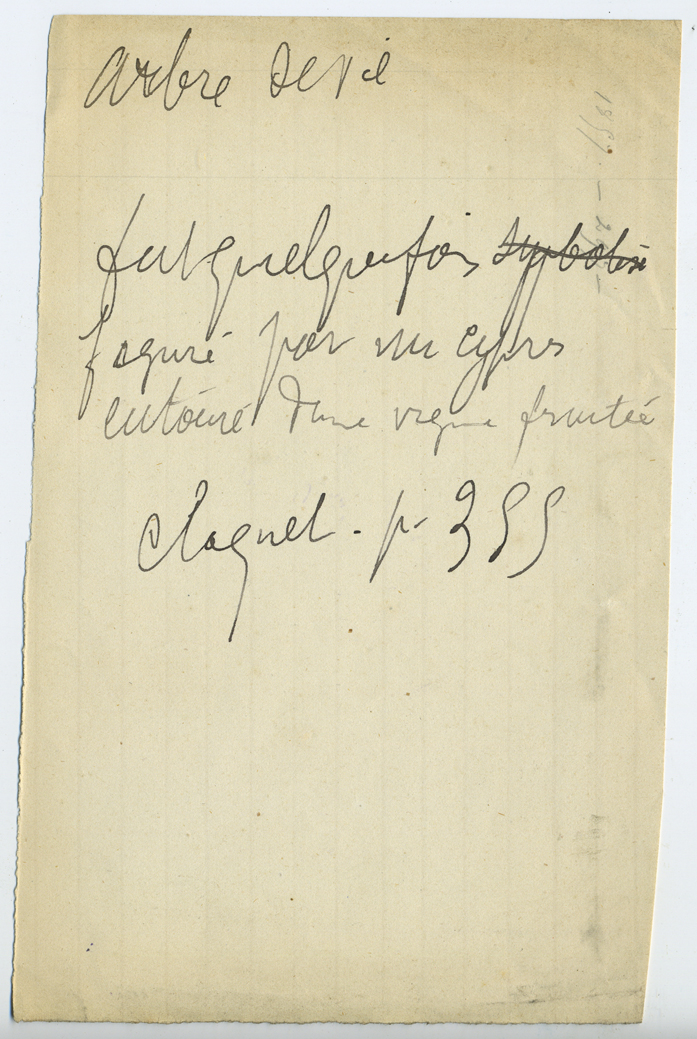 arbre de vie
fut quelquefois symbolisé
figuré par un cyprès
entouré d'une vigne fruitée
Claquet - p. 355